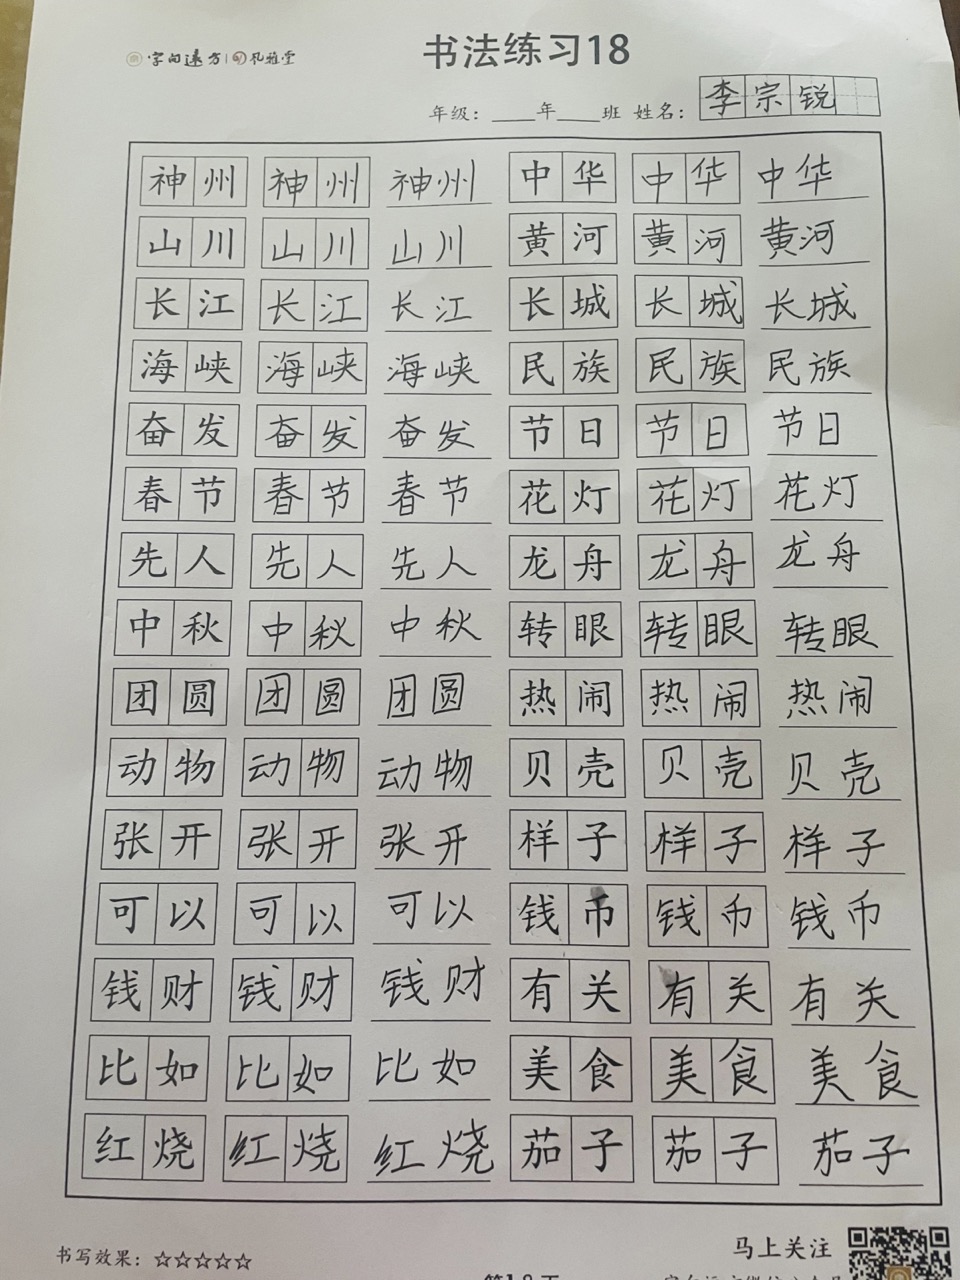 字向远方 孔雅堂
书法练习18
年级：____年____班 姓名： 李宗锐
神州 神州 神州 中华 中华 中华
山川 山川 山川 黄河 黄河 黄河
长江 长江 长江 长城 长城 长城
海峡 海峡 海峡 民族 民族 民族
奋发 奋发 奋发 节日 节日 节日
春节 春节 春节 花灯 花灯 花灯
先人 先人 先人 龙舟 龙舟 龙舟
中秋 中秋 中秋 转眼 转眼 转眼
团圆 团圆 团圆 热闹 热闹 热闹
动物 动物 动物 贝壳 贝壳 贝壳
张开 张开 张开 样子 样子 样子
可以 可以 可以 钱币 钱币 钱币
钱财 钱财 钱财 有关 有关 有关
比如 比如 比如 美食 美食 美食
红烧 红烧 红烧 茄子 茄子 茄子
书写效果：☆☆☆☆☆
马上关注